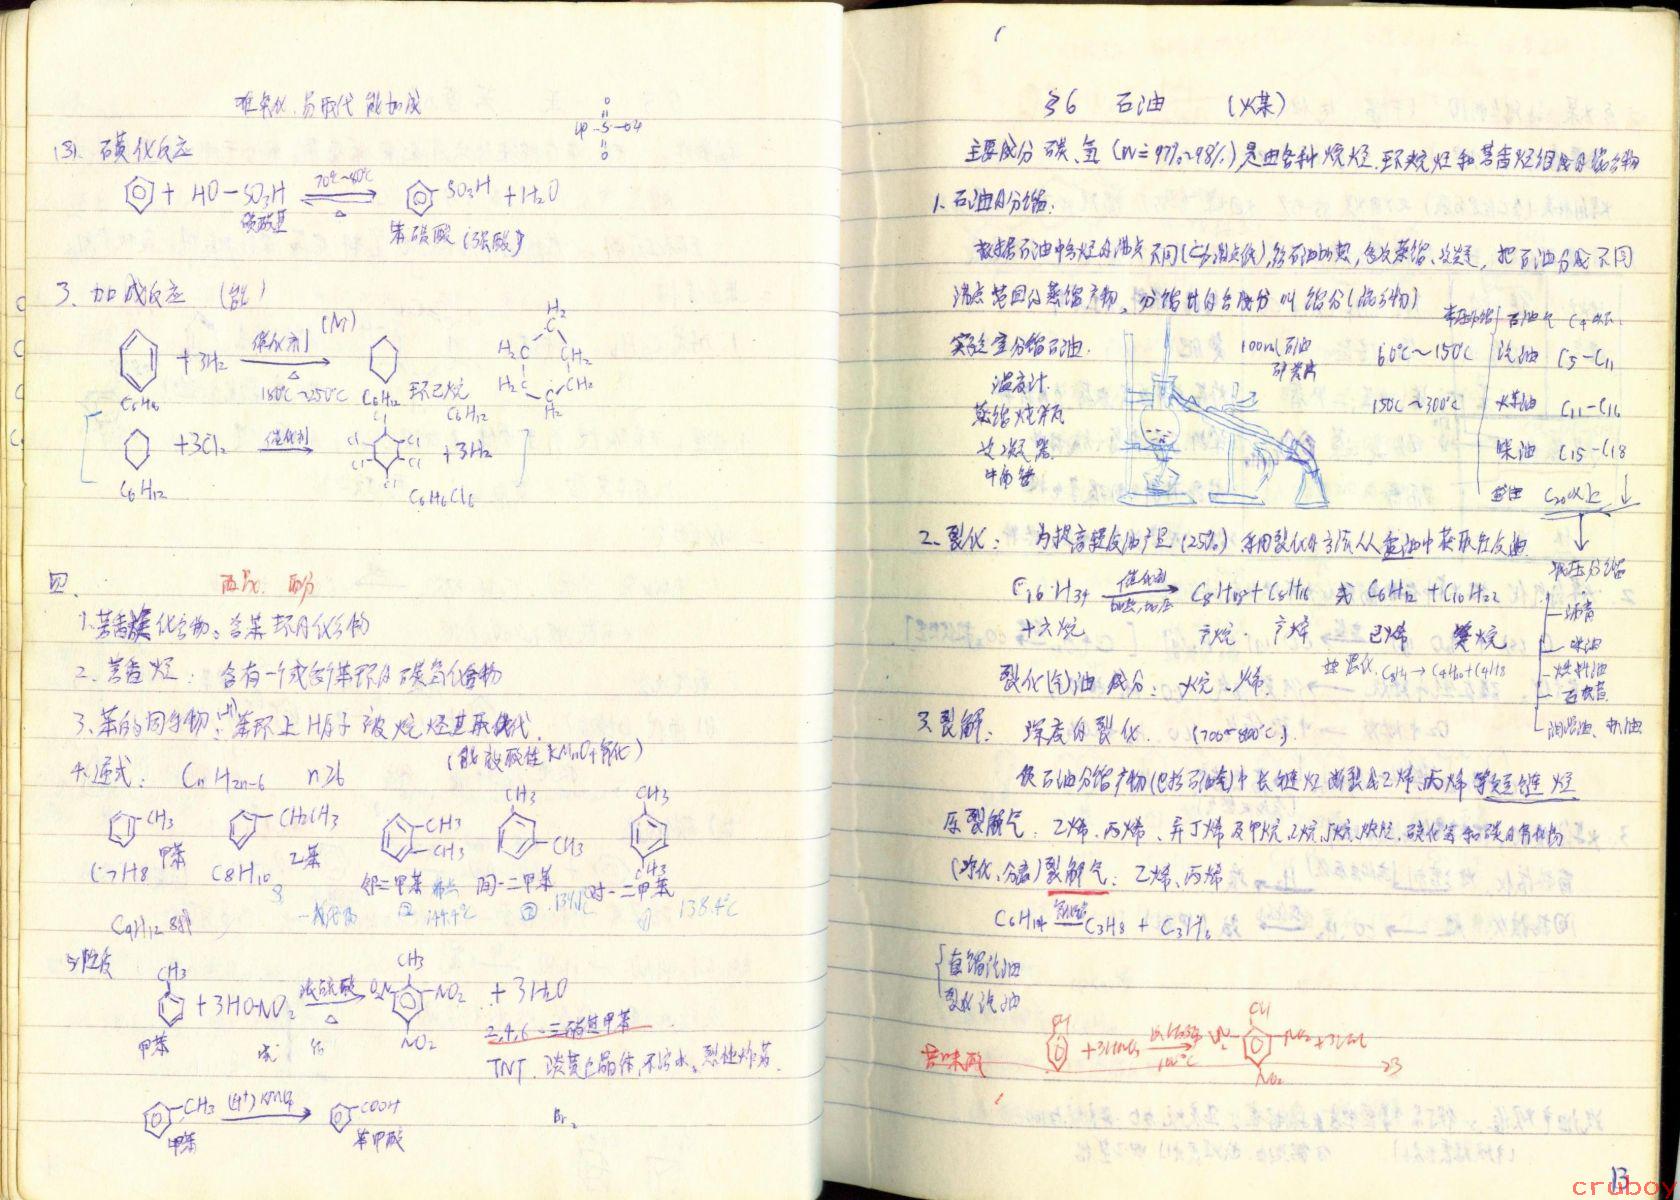 难氧化、易取代 能加成
(3). 磺化反应
+ HO—SO3H 70℃~80℃ △ SO3H + H2O
磺酸基 苯磺酸 (强酸)
3. 加成反应 (能)
+3H2 催化剂 (Ni) △ 180℃~250℃
C6H6 C6H12 环己烷 C6H12
+3Cl2 催化剂 +3H2
C6H12 C6H6Cl6
四.
1. 芳香族化合物: 含苯环的化合物
2. 芳香烃: 含有一个或多个苯环的碳氢化合物
3. 苯的同系物: 苯环上H原子被烷烃基取代
(能被酸性KMnO4氧化)
4. 通式: CnH2n-6 n≥6
-CH3 -CH2CH3 CH3 CH3 CH3 CH3 CH3 CH3
C7H8 甲苯 C8H10 乙苯 邻二甲苯 间-二甲苯 对-二甲苯
沸点 144.4℃ 139.1℃ 138.4℃
C9H12 8种
5. 性质
CH3 + 3HO-NO2 浓硫酸 △ CH3 O2N -NO2 NO2 + 3H2O
甲苯 2,4,6-三硝基甲苯
TNT 淡黄色晶体,不溶水。烈性炸药.
-CH3 (H+) KMnO4 -COOH Br2
甲苯 苯甲酸
§6 石油 (煤)
主要成分 碳、氢 (W=97%~98%) 是由各种烷烃、环烷烃和芳香烃组成的混合物
1. 石油的分馏:
根据石油中各烃的沸点不同(C少沸点低),给石油加热,多次蒸馏、冷凝, 把石油分成不同
沸点范围的蒸馏产物。分馏出的各成分叫馏分(混合物)
常压分馏 石油气 C4以下
实验室分馏石油. 100mL石油 碎瓷片 60℃~150℃ 汽油 C5-C11
温度计 150℃~300℃ 煤油 C11-C16
蒸馏烧瓶
冷凝器 柴油 C15-C18
牛角管 重油 C20以上
2. 裂化: 为提高轻质油产量 (25%) 采用裂化的方法从重油中获取轻质油
减压分馏
C16H34 催化剂 加热,加压 C8H18 + C8H16 或 C6H12 + C10H22
十六烷 辛烷 辛烯 己烯 癸烷
沥青
柴油
燃料油
石蜡
润滑油、机油
裂化(汽)油 成分: 烷、烯
3. 裂解: 深度的裂化. (700~800℃).
使石油分馏产物(包括石油气)中长链烃断裂成乙烯、丙烯等短链烃
原裂解气: 乙烯、丙烯、异丁烯及甲烷、乙烷、丁烷、炔烃、硫化氢和碳的有机物
(净化、分离) 裂解气: 乙烯、丙烯
C6H14 C3H8 + C3H6
直馏汽油
裂化汽油
苦味酸
23
13
cruboy